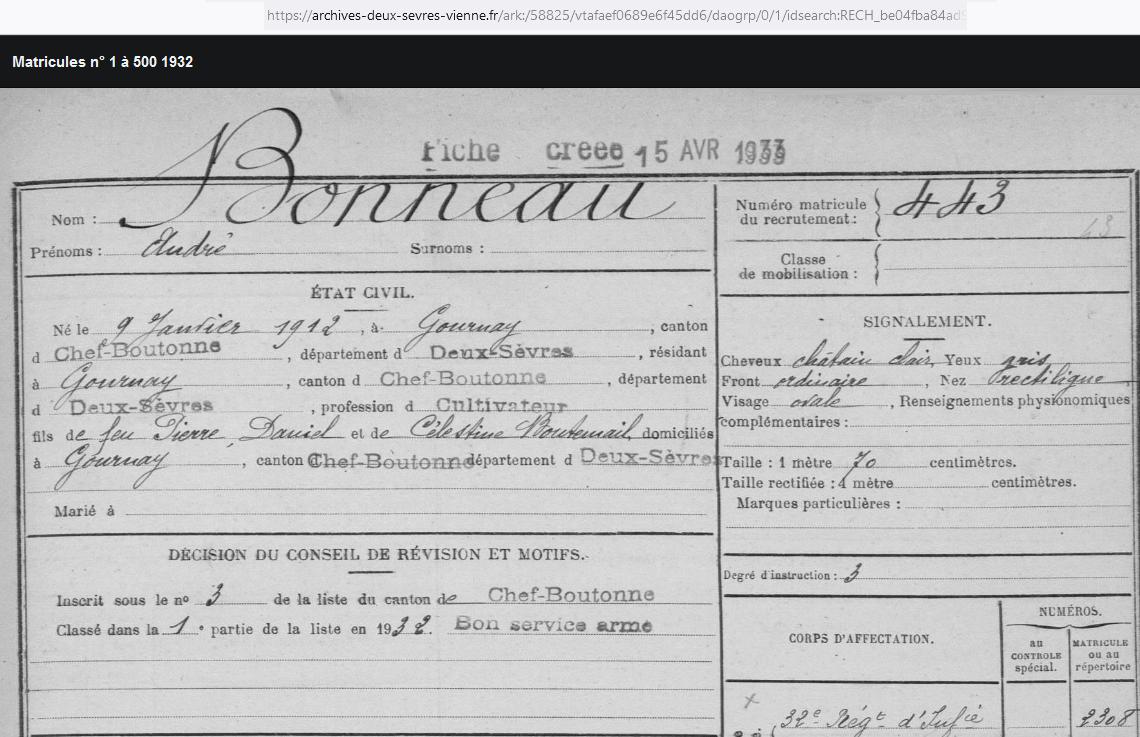 https://archives-deux-sevres-vienne.fr/ark:/58825/vtafaef0689e6f45dd6/daogrp/0/1/idsearch:RECH_be04fba84ad9
Matricules n° 1 à 500 1932
Fiche creee 15 AVR 1933
Nom : Bonneau
Prénoms : André Surnoms :
ÉTAT CIVIL.
Né le 9 Janvier 1912, à Gournay, canton
d Chef-Boutonne, département d Deux-Sèvres, résidant
à Gournay, canton d Chef-Boutonne, département
d Deux-Sèvres, profession d Cultivateur
fils de feu Pierre, Daniel et de Célestine domiciliés
à Gournay, canton Chef-Boutonne département d Deux-Sèvres
Marié à
DÉCISION DU CONSEIL DE RÉVISION ET MOTIFS.
Inscrit sous le nº 3 de la liste du canton de Chef-Boutonne
Classé dans la 1e partie de la liste en 1932. Bon service armé
Numéro matricule
du recrutement : 443
43
Classe
de mobilisation :
SIGNALEMENT.
Cheveux châtain clair, Yeux gris
Front ordinaire, Nez rectiligne
Visage ovale, Renseignements physionomiques
complémentaires :
Taille : 1 mètre 70 centimètres.
Taille rectifiée : 1 mètre centimètres.
Marques particulières :
Degré d'instruction : 3
CORPS D'AFFECTATION.
NUMÉROS.
au
CONTROLE
spécial.
MATRICULE
ou au
répertoire
32e Régt d'Infie 2308